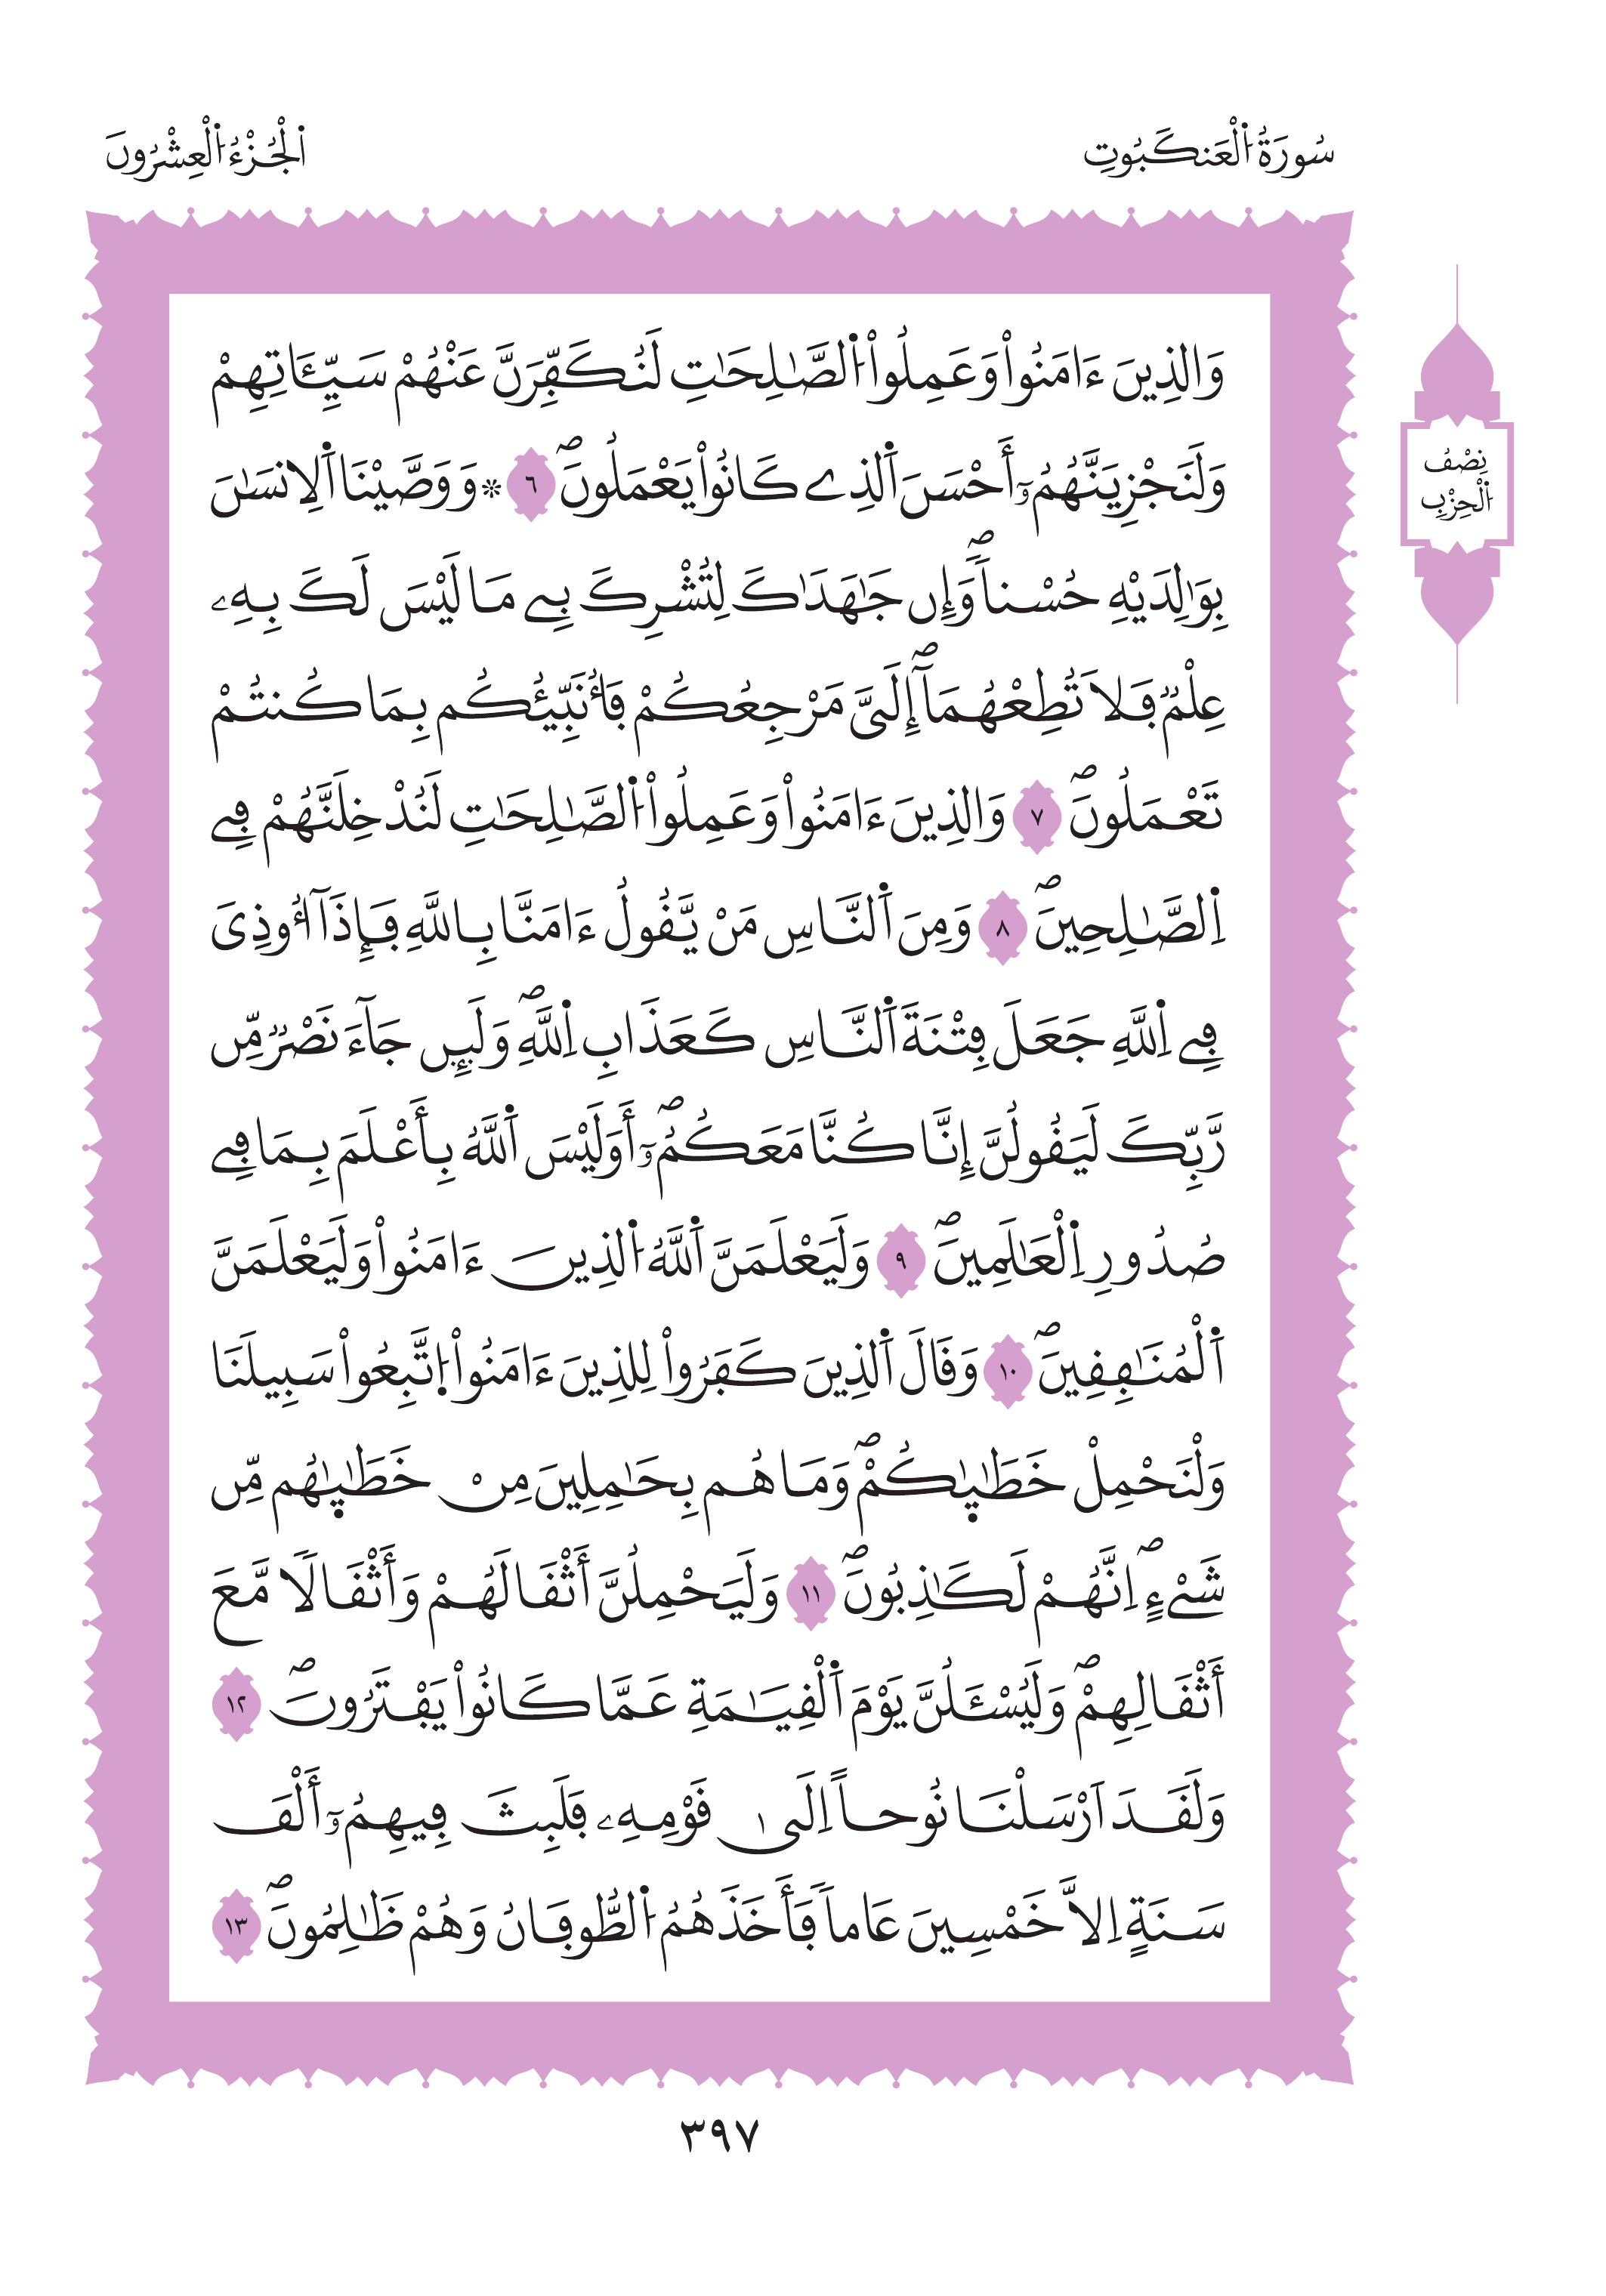 سُورَةُ اُ۬لْعَنكَبُوتِ
اَ۬لْجُزْءُ اُ۬لْعِشْرُونَ
وَالذِينَ ءَامَنُواْ وَعَمِلُواْ اُ۬لصَّٰلِحَٰتِ لَنُكَفِّرَنَّ عَنْهُمْ سَيِّـَٔاتِهِمْ
وَلَنَجْزِيَنَّهُمُۥٓ أَحْسَنَ اَ۬لذِے كَانُواْ يَعْمَلُونَۖ ٦ ۞ وَوَصَّيْنَا اَ۬لِانسَٰنَ
بِوَٰلِدَيْهِ حُسْناٗۖ وَإِن جَٰهَدَٰكَ لِتُشْرِكَ بِے مَا لَيْسَ لَكَ بِهِۦ
عِلْمٞ فَلَا تُطِعْهُمَآۖ إِلَيَّ مَرْجِعُكُمْ فَأُنَبِّئُكُم بِمَا كُنتُمْ
تَعْمَلُونَۖ ٧ وَالذِينَ ءَامَنُواْ وَعَمِلُواْ اُ۬لصَّٰلِحَٰتِ لَنُدْخِلَنَّهُمْ فِے
اِ۬لصَّٰلِحِينَۖ ٨ وَمِنَ اَ۬لنَّاسِ مَنْ يَّقُولُ ءَامَنَّا بِاللَّهِ فَإِذَآ أُوذِيَ
فِے اِ۬للَّهِ جَعَلَ فِتْنَةَ اَ۬لنَّاسِ كَعَذَابِ اِ۬للَّهِۖ وَلَئِن جَآءَ نَصْرٞ مِّن
رَّبِّكَ لَيَقُولُنَّ إِنَّا كُنَّا مَعَكُمُۥٓۖ أَوَلَيْسَ اَ۬للَّهُ بِأَعْلَمَ بِمَا فِے
صُدُورِ اِ۬لْعَٰلَمِينَۖ ٩ وَلَيَعْلَمَنَّ اَ۬للَّهُ اُ۬لذِينَ ءَامَنُواْ وَلَيَعْلَمَنَّ
اَ۬لْمُنَٰفِقِينَۖ ١٠ وَقَالَ اَ۬لذِينَ كَفَرُواْ لِلذِينَ ءَامَنُواْ اُ۪تَّبِعُواْ سَبِيلَنَا
وَلْنَحْمِلْ خَطَٰيٜكُمْۖ وَمَا هُم بِحَٰمِلِينَ مِنْ خَطَٰيٜهُم مِّن
شَےْءٍۖ اِنَّهُمْ لَكَٰذِبُونَۖ ١١ وَلَيَحْمِلُنَّ أَثْقَالَهُمْ وَأَثْقَالٗا مَّعَ
أَثْقَالِهِمْۖ وَلَيُسْـَٔلُنَّ يَوْمَ اَ۬لْقِيَٰمَةِ عَمَّا كَانُواْ يَفْتَرُونَۖ ١٢
وَلَقَدَ اَرْسَلْنَا نُوحاً اِلَىٰ قَوْمِهِۦ فَلَبِثَ فِيهِمُۥٓ أَلْفَ
سَنَةٍ اِلَّا خَمْسِينَ عَاماٗ فَأَخَذَهُمُ اُ۬لطُّوفَانُ وَهُمْ ظَٰلِمُونَۖ ١٣
نِصْفُ
اُ۬لْحِزْبِ
٣٩٧